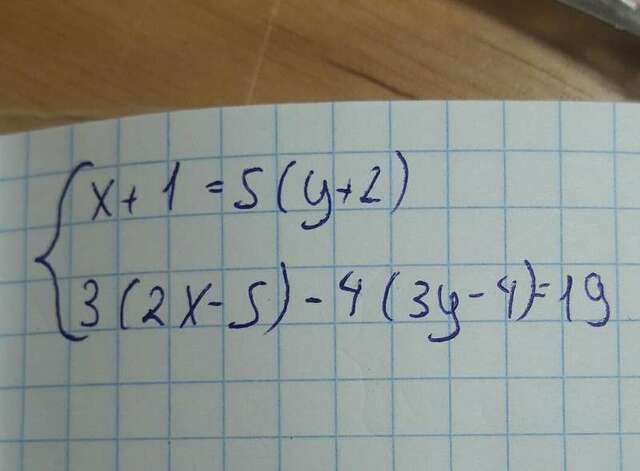 x+1=5(y+2)
3(2x-5)-4(3y-4)=19